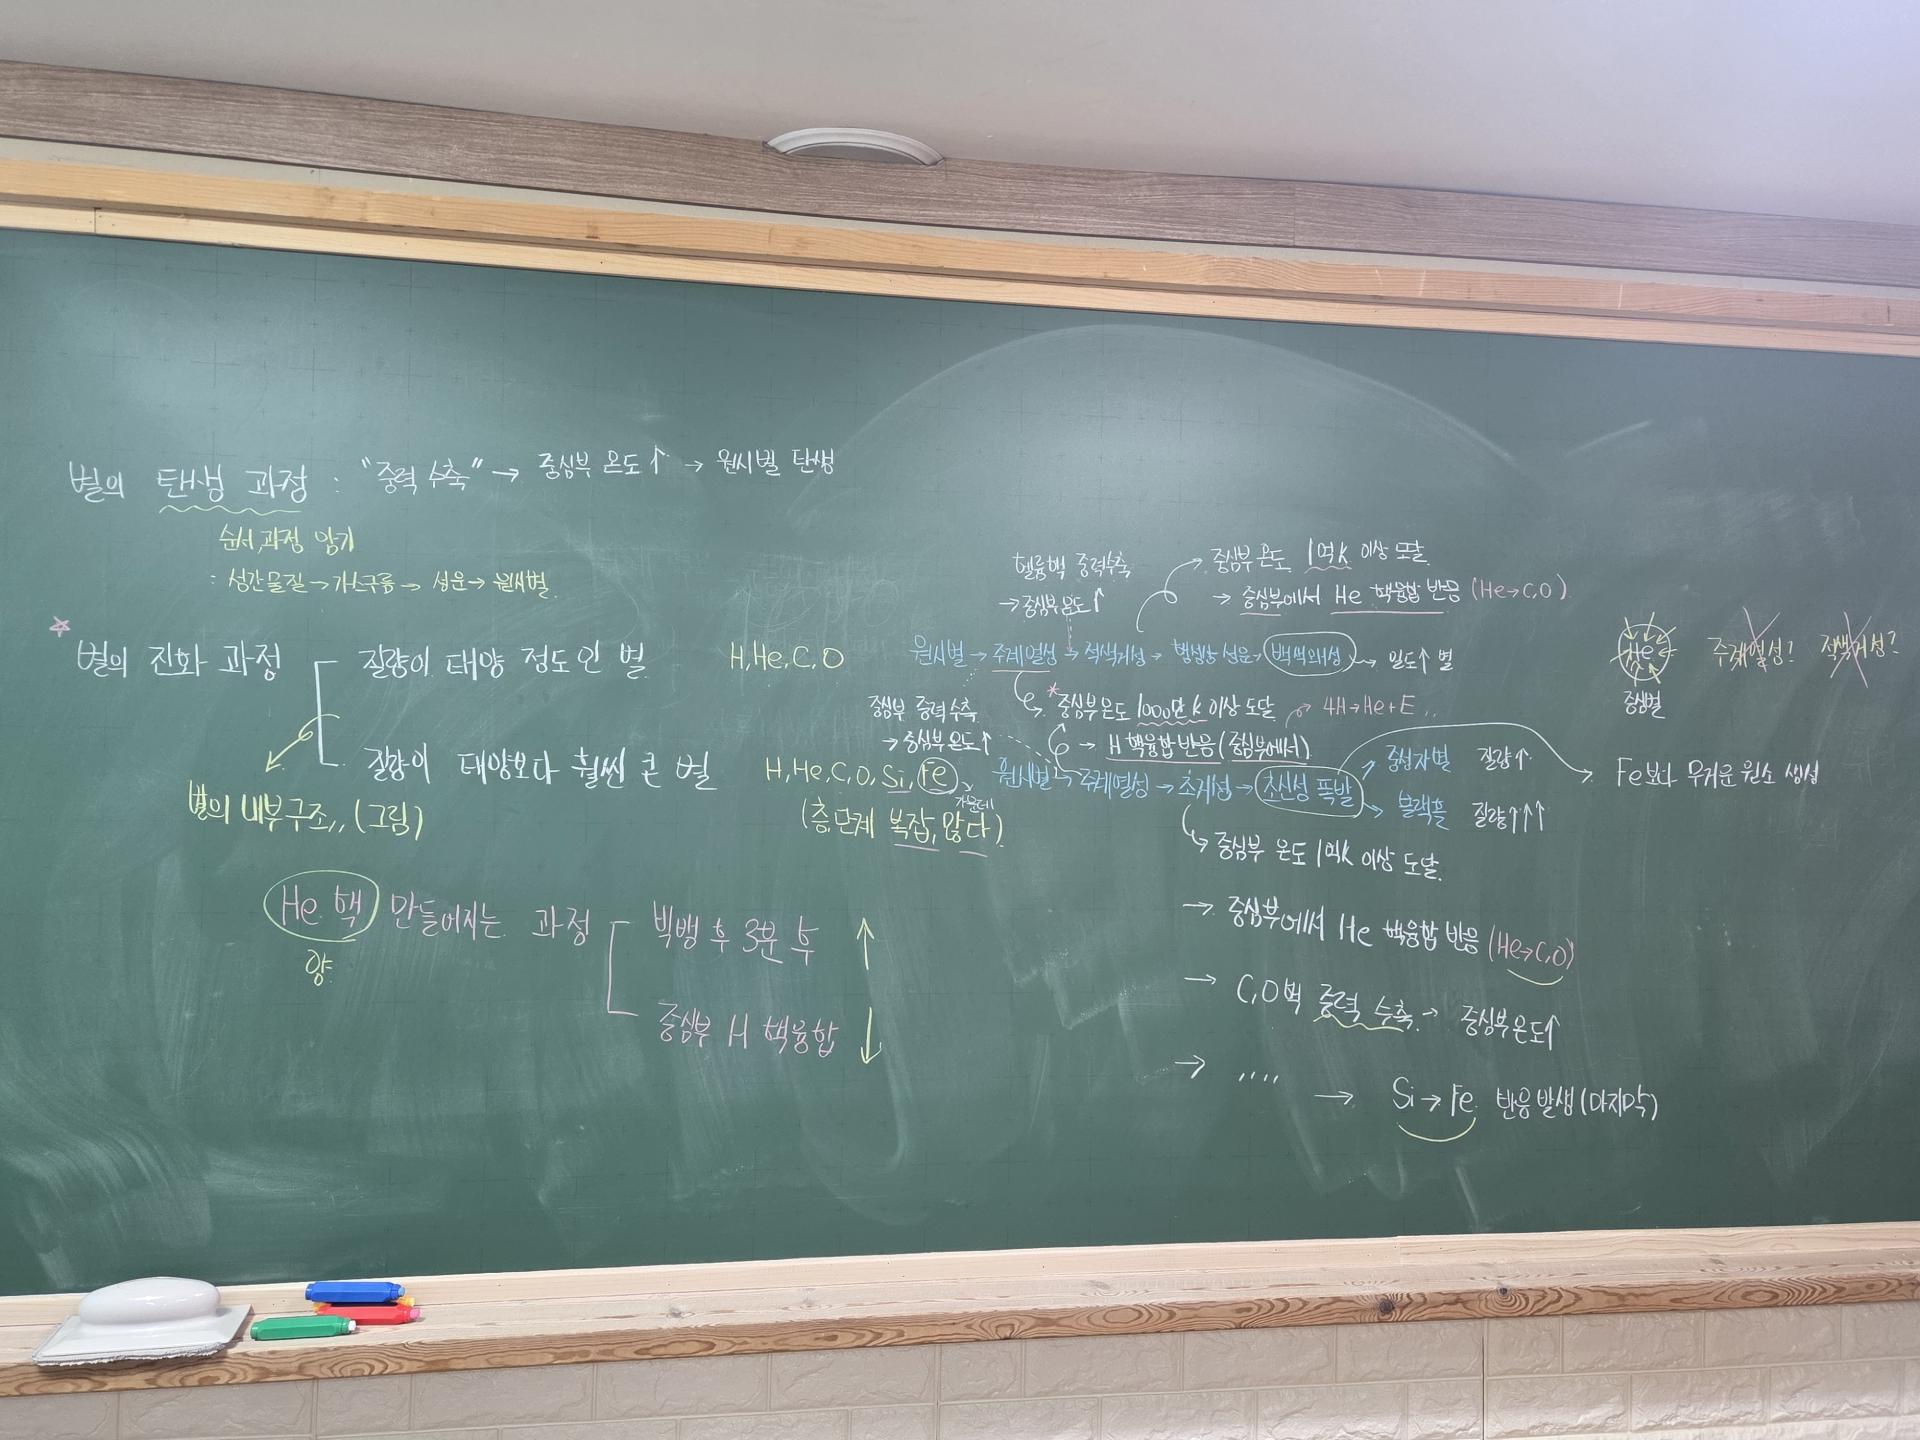 별의 탄생 과정 : "중력 수축" → 중심부 온도↑ → 원시별 탄생
순서, 과정 암기
: 성간물질 → 가스구름 → 성운 → 원시별
헬륨핵 중력수축
→ 중심부 온도↑
중심부 온도 1억K 이상 도달.
→ 중심부에서 He 핵융합 반응 (He→C,O)
별의 진화 과정
질량이 태양 정도인 별
H, He, C, O
원시별 → 주계열성 → 적색거성 → 행성상 성운 → 백색왜성 → 밀도↑ 별
He
중심별
주계열성? 적색거성?
중심부 온도 1000만K 이상 도달
→ H 핵융합 반응 (중심부에서)
4H→He+E
중심부 중력수축
→ 중심부 온도↑
질량이 태양보다 훨씬 큰 별
H, He, C, O, Si, Fe
가운데
(층, 단계 복잡, 많다)
원시별 → 주계열성 → 초거성 → 초신성 폭발
중성자별 질량↑
블랙홀 질량↑↑↑
Fe보다 무거운 원소 생성
별의 내부구조,, (그림)
중심부 온도 1억K 이상 도달.
→ 중심부에서 He 핵융합 반응 (He→C,O)
→ C,O핵 중력 수축 → 중심부 온도↑
→ ....
→ Si→Fe 반응 발생 (마지막)
He 핵 만들어지는 과정
양
빅뱅 후 3분 후 ↑
중심부 H 핵융합 ↓